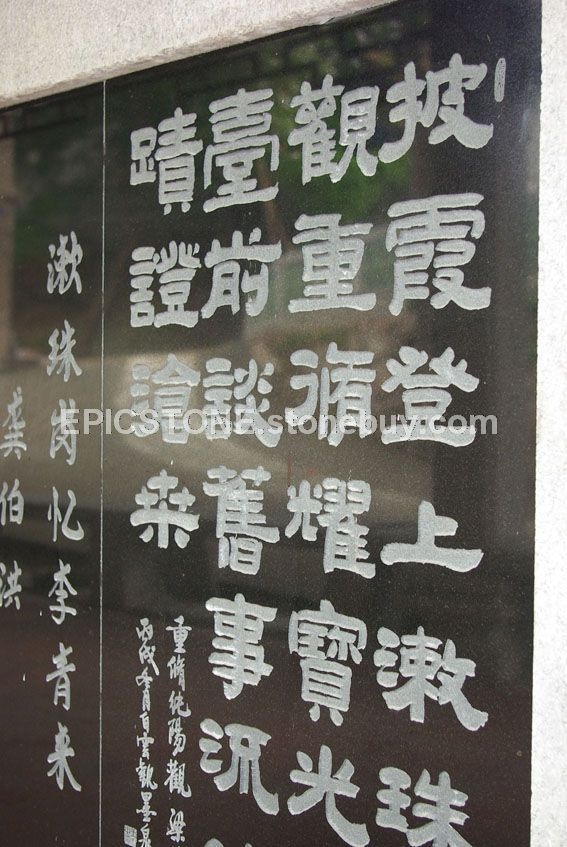 披霞登上漱珠
觀重脩耀寶光
臺前談舊事流
蹟證滄桒
重脩純陽觀 梁
丙戌年白雲執墨泉
漱珠岗忆李青来
龚伯洪
EPICSTONE.stonebuy.com